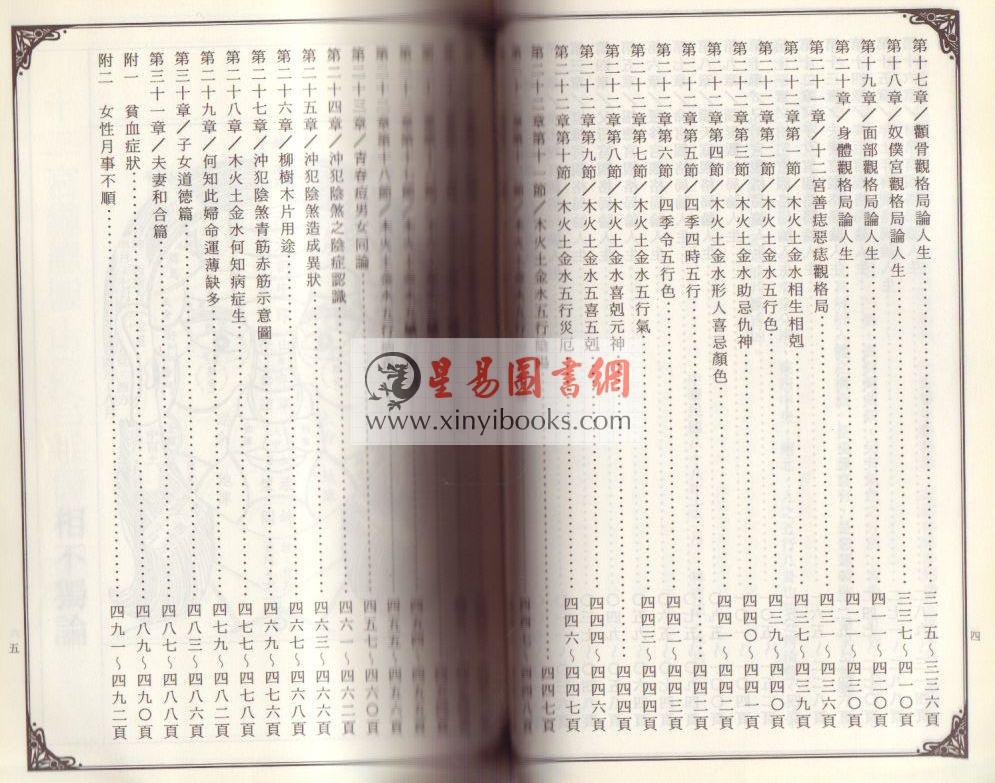 第十七章／顴骨觀格局論人生 三一五～三三六頁
第十八章／奴僕宮觀格局論人生 三三七～四一〇頁
第十九章／面部觀格局論人生 四一一～四二〇頁
第二十章／身體觀格局論人生 四二一～四三〇頁
第二十一章／十二宮善痣惡痣觀格局 四三一～四三六頁
第二十二章第一節／木火土金水相生相剋 四三七～四三九頁
第二十二章第二節／木火土金水五行色 四三九～四四〇頁
第二十二章第三節／木火土金水助忌仇神 四四〇～四四一頁
第二十二章第四節／木火土金水形人喜忌顏色 四四一～四四二頁
第二十二章第五節／四季四時五行 四四二頁
第二十二章第六節／四季令五行色 四四二～四四三頁
第二十二章第七節／木火土金水五行氣 四四三～四四四頁
第二十二章第八節／木火土金水喜剋元神 四四四頁
第二十二章第九節／木火土金水五喜五剋 四四四～四四六頁
第二十二章第十節／木火土金水五行災厄 四四六～四四七頁
第二十二章第十一節／木火土金水五行 四四七頁
四
第二十三章／青春痘男女同論 四五七～四六〇頁
第二十四章／沖犯陰煞之陰症認識 四六一～四六二頁
第二十五章／沖犯陰煞造成異狀 四六三～四六六頁
第二十六章／柳樹木片用途 四六七～四六八頁
第二十七章／沖犯陰煞青筋赤筋示意圖 四六九～四七六頁
第二十八章／木火土金水何知病症生 四七七～四七八頁
第二十九章／何知此婦命運薄缺多 四七九～四八二頁
第三十章／子女道德篇 四八三～四八六頁
第三十一章／夫妻和合篇 四八七～四八八頁
附一 貧血症狀 四八九～四九〇頁
附二 女性月事不順 四九一～四九二頁
五
星易圖書網
www.xinyibooks.com
相不獨論